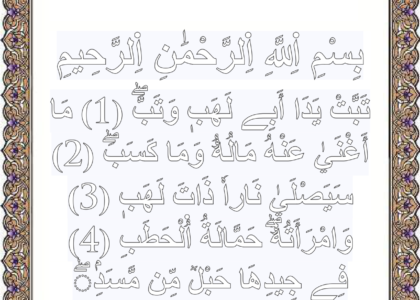 بِسْمِ اِ۬للَّهِ اِ۬لرَّحْمَٰنِ اِ۬لرَّحِيمِ
تَبَّتْ يَدَا أَبِے لَهَبٖ وَتَبَّۖ (1) مَا
أَغْنَىٰ عَنْهُ مَالُهُۥ وَمَا كَسَبَۖ (2)
سَيَصْلَىٰ نَاراٗ ذَاتَ لَهَبٖ (3)
وَامْرَأَتُهُۥۖ حَمَّالَةُ اُ۬لْحَطَبِ (4)
فِے جِيدِهَا حَبْلٞ مِّن مَّسَدٍۖ